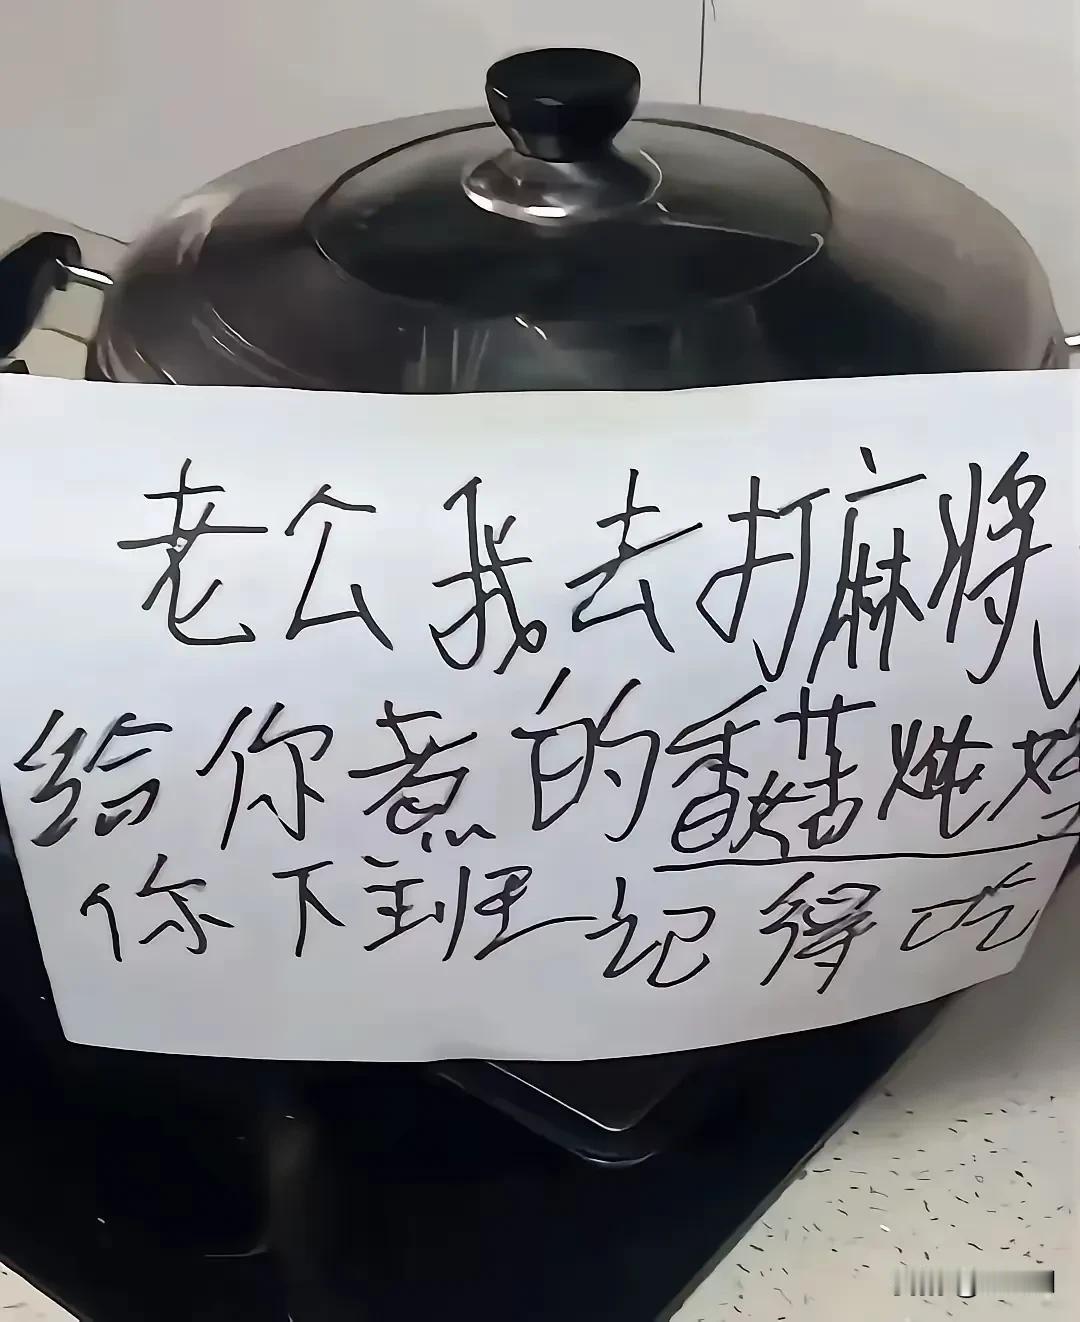 老公我去打麻将,
给你煮的香菇炖
你下班记得吃